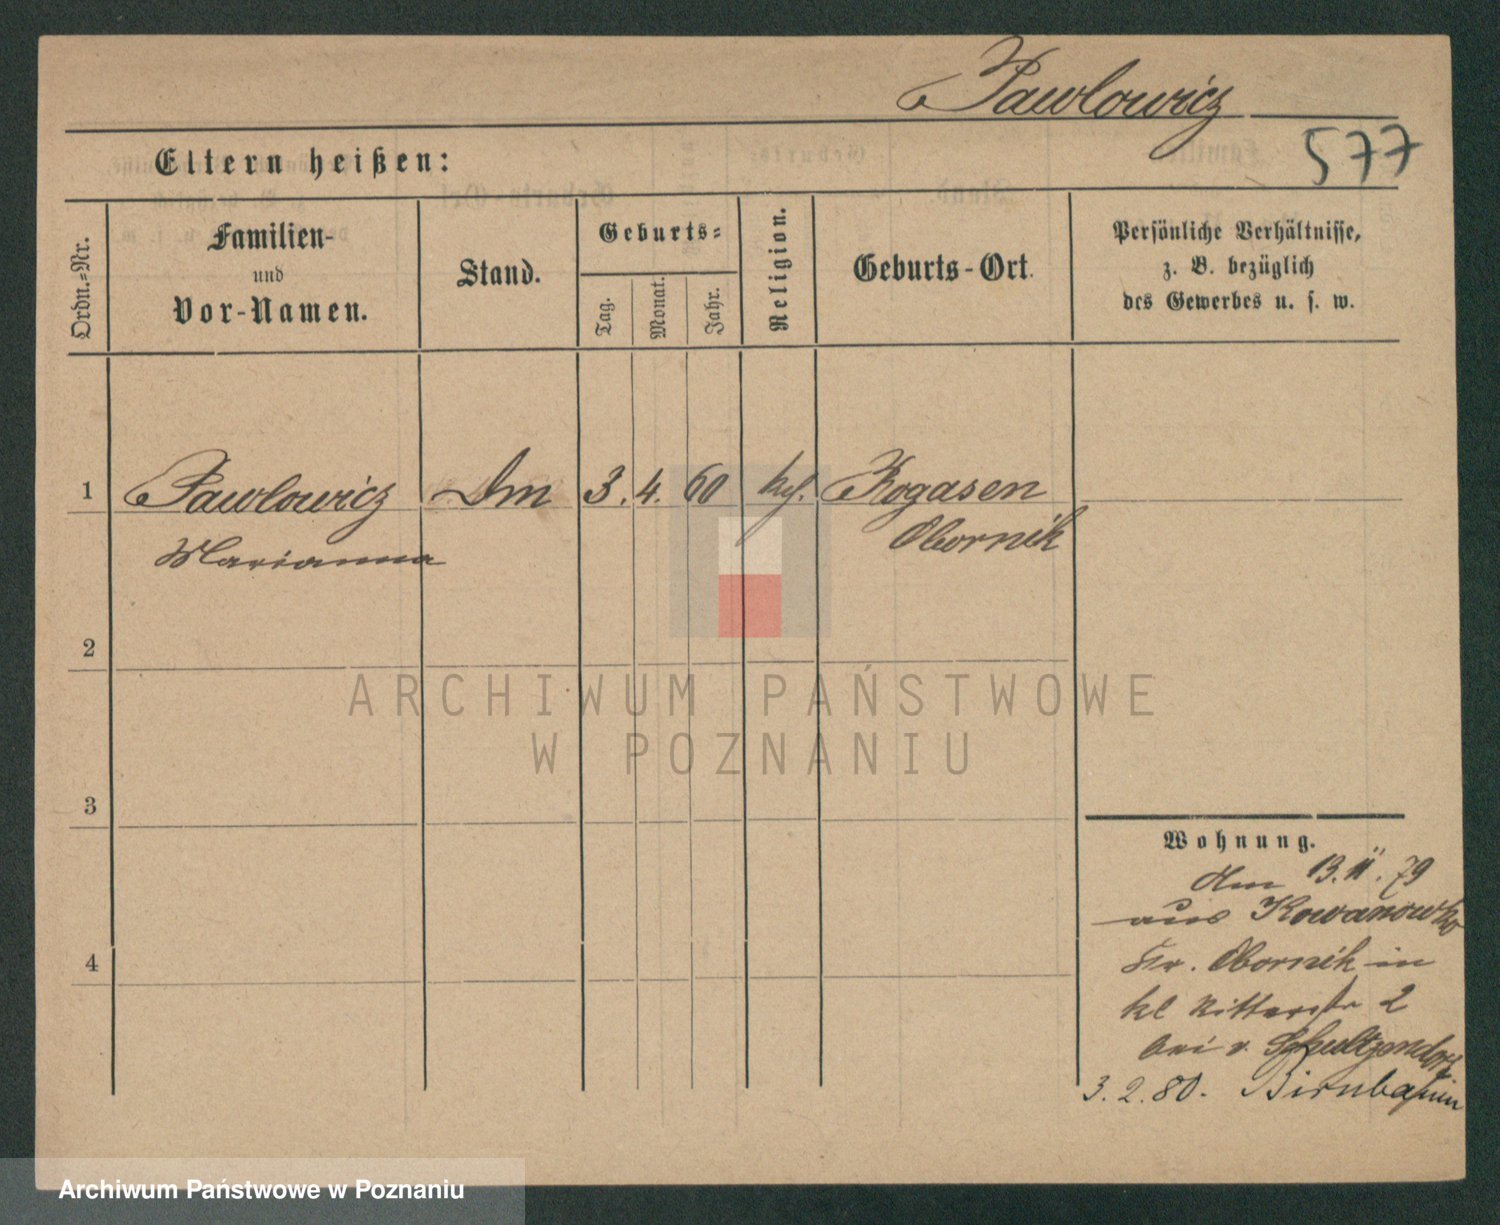 Pawlowicz
577
Eltern heißen:
Ordn.-Nr.
Familien-
und
Vor-Namen.
Stand.
Geburts-
Tag.
Monat.
Jahr.
Religion.
Geburts-Ort.
Persönliche Verhältnisse,
z. B. bezüglich
des Gewerbes u. s. w.
1 Pawlowicz Dm 3. 4. 60 kath. Rogasen
Marianna Obornik
2
3
4
Wohnung.
13. 11. 79
aus Kowanowko
Kr. Obornik in
kl Ritterstr 2
bei v. Schultzendorf
3. 2. 80. Birnbaum
ARCHIWUM PAŃSTWOWE
W POZNANIU
Archiwum Państwowe w Poznaniu